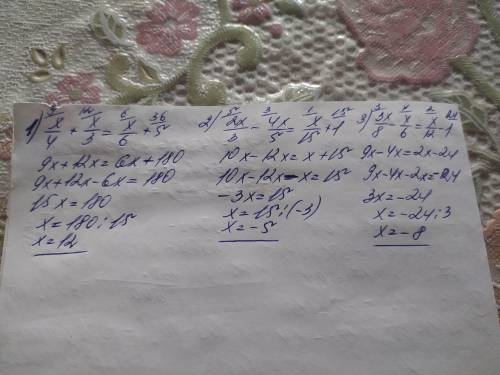 1) x/4 + x/3 = x/6 + 5
9x+12x=6x+180
9x+12x-6x=180
15x=180
x=180:15
x=12
2) 2x/3 - 4x/5 = x/15 + 1
10x-12x=x+15
10x-12x-x=15
-3x=15
x=15:(-3)
x=-5
3) 3x/8 - x/6 = x/12 - 1
9x-4x=2x-24
9x-4x-2x=-24
3x=-24
x=-24:3
x=-8